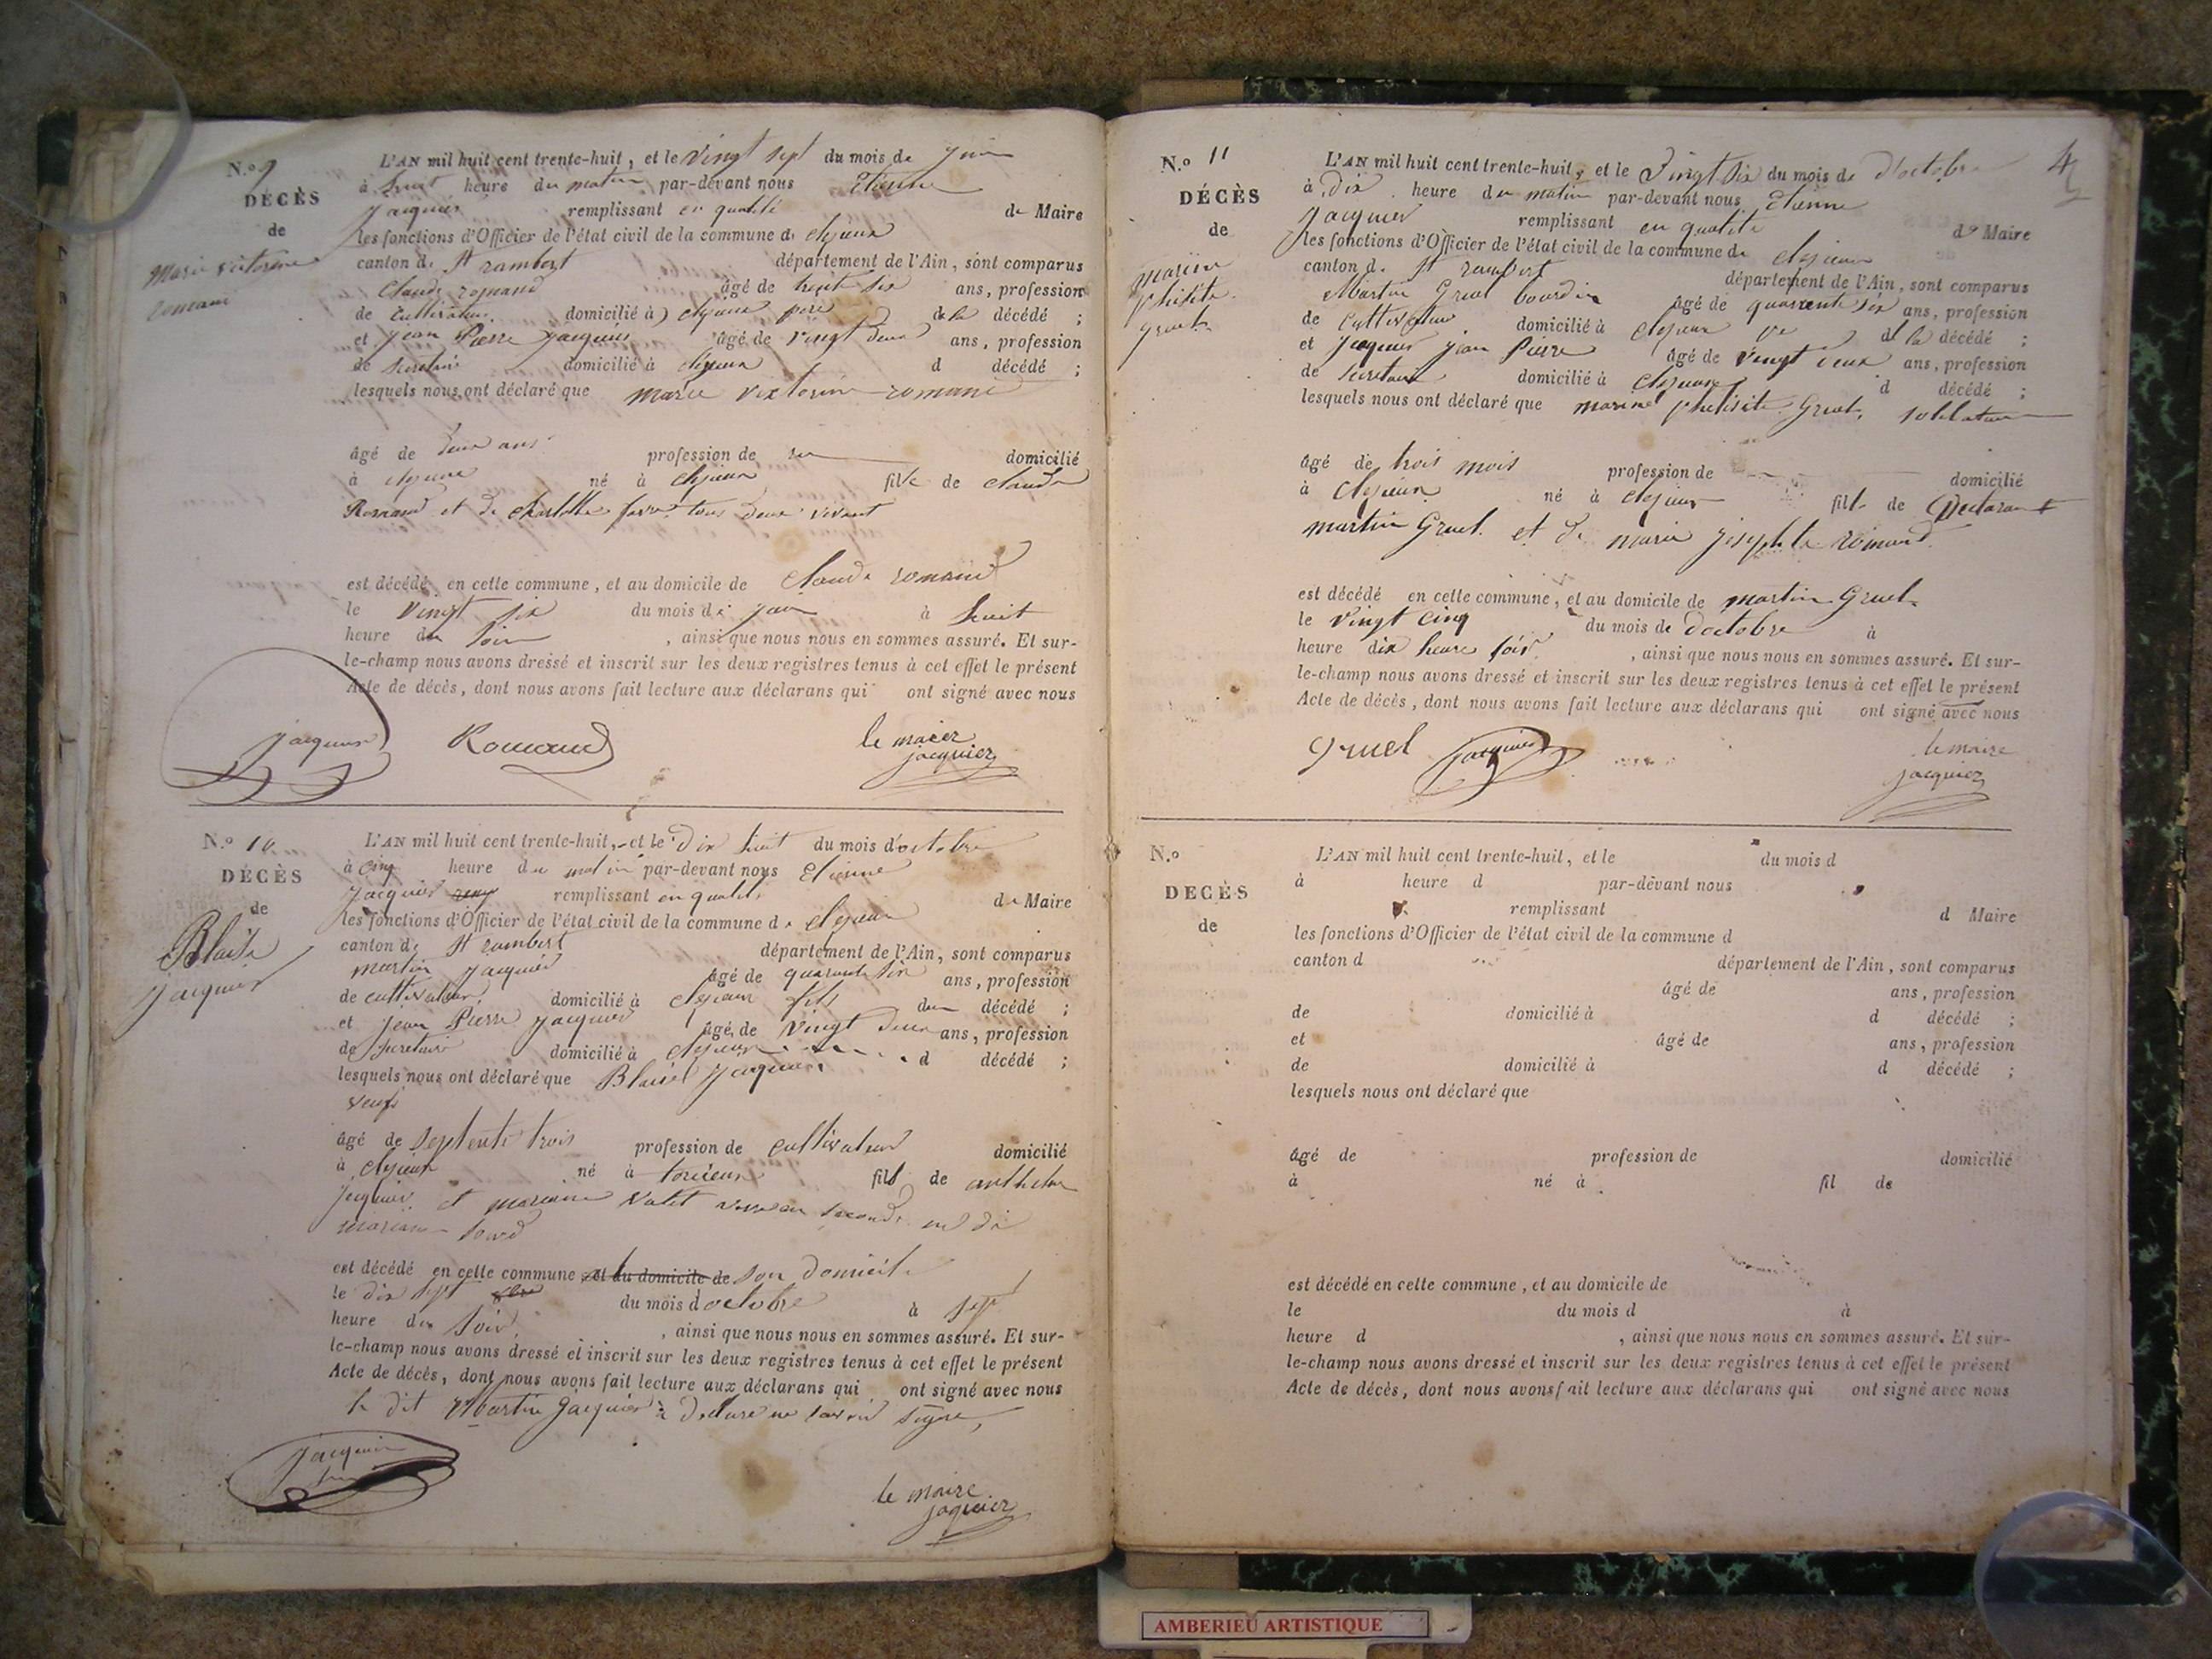 N.o 9
DÉCÈS
de
Marie victorine
romand
L'AN mil huit cent trente-huit, et le vingt sept du mois de juin
à huit heure du matin par-devant nous Etienne
Jacquier remplissant en qualité de Maire
les fonctions d'Officier de l'état civil de la commune de
canton de St rambert département de l'Ain, sont comparus
Claude romand âgé de trent six ans, profession
de cultivateur domicilié à père de la décédé ;
et jean Pierre jacquier âgé de vingt deux ans, profession
de secretaire domicilié à d décédé ;
lesquels nous ont déclaré que marie victorine romand
âgé de deux ans profession de domicilié
à né à fille de claude
Romand et de charlotte favre tous deux vivant
est décédé en cette commune, et au domicile de Claude romand
le vingt six du mois de juin à huit
heure du soir, ainsi que nous nous en sommes assuré. Et sur-
le-champ nous avons dressé et inscrit sur les deux registres tenus à cet effet le présent
Acte de décès, dont nous avons fait lecture aux déclarans qui ont signé avec nous
jacquier Romand le maier
jacquier
N.o 10
DÉCÈS
de
Blaise
Jacquier
L'AN mil huit cent trente-huit, et le dix huit du mois d'octobre
à cinq heure du matin par-devant nous Etienne
Jacquier remplissant en qualité de Maire
les fonctions d'Officier de l'état civil de la commune de
canton de St rambert département de l'Ain, sont comparus
martin jacquier âgé de quarante six ans, profession
de cultivateur domicilié à fils du décédé ;
et jean Pierre jacquier âgé de vingt deux ans, profession
de secretaire domicilié à d décédé ;
lesquels nous ont déclaré que Blaise jacquier
veuf
âgé de septente trois profession de cultivateur domicilié
à né à torcieux fils de anthelme
jacquier et mariane Valet en seconde de
mariane
est décédé en cette commune et au domicile de son domicile
le dix sept du mois d octobre à sept
heure du soir, ainsi que nous nous en sommes assuré. Et sur-
le-champ nous avons dressé et inscrit sur les deux registres tenus à cet effet le présent
Acte de décès, dont nous avons fait lecture aux déclarans qui ont signé avec nous
le dit Martin jacquier a declare ne savoir signe,
jacquier
le maire
jaquier
N.o 11
DÉCÈS
de
marine
phelisite
gruel
L'AN mil huit cent trente-huit, et le Vingt six du mois de d'octobre
à dix heure du matin par-devant nous Etienne
jacquier remplissant en qualité de Maire
les fonctions d'Officier de l'état civil de la commune de
canton de St rambert département de l'Ain, sont comparus
Martin Gruel bourdin âgé de quarente six ans, profession
de cultivateur domicilié à d la décédé ;
et jacquier jean Pierre âgé de vingt deux ans, profession
de secretaire domicilié à d décédé ;
lesquels nous ont déclaré que marine phelisite Gruel
âgé de trois mois profession de domicilié
à né à fille de Declarant
martin Gruel et de marie josephte romand
est décédé en cette commune, et au domicile de martin Gruel
le vingt cinq du mois de doctobre à
heure dix heure soir, ainsi que nous nous en sommes assuré. Et sur-
le-champ nous avons dressé et inscrit sur les deux registres tenus à cet effet le présent
Acte de décès, dont nous avons fait lecture aux déclarans qui ont signé avec nous
Gruel jacquier le maire
jacquier
N.o
DÉCÈS
de
L'AN mil huit cent trente-huit, et le du mois d
à heure d par-devant nous
remplissant d Maire
les fonctions d'Officier de l'état civil de la commune d
canton d département de l'Ain, sont comparus
âgé de ans, profession
de domicilié à d décédé ;
et âgé de ans, profession
de domicilié à d décédé ;
lesquels nous ont déclaré que
âgé de profession de domicilié
à né à fil de
est décédé en cette commune, et au domicile de
le du mois d à
heure d , ainsi que nous nous en sommes assuré. Et sur-
le-champ nous avons dressé et inscrit sur les deux registres tenus à cet effet le présent
Acte de décès, dont nous avons fait lecture aux déclarans qui ont signé avec nous
AMBERIEU ARTISTIQUE